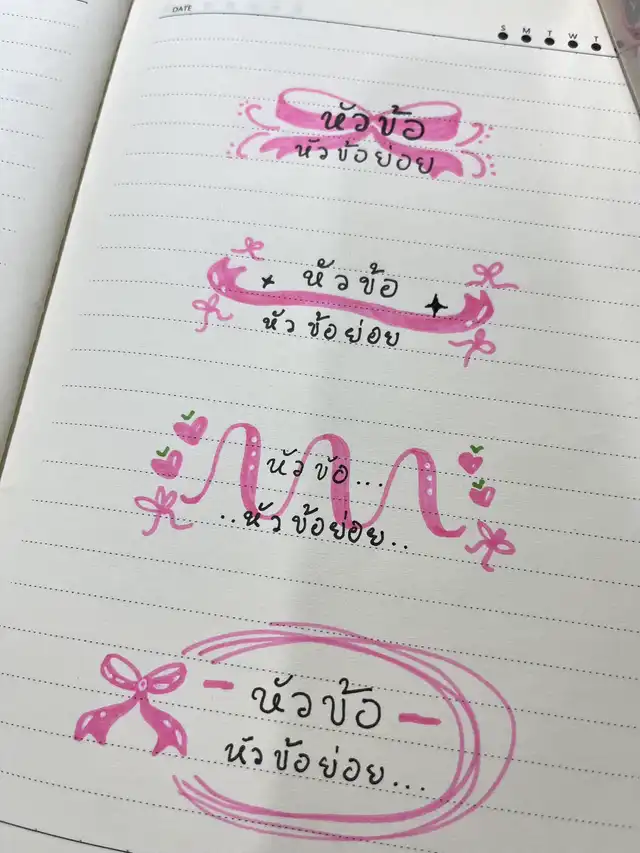 DATE
S M T W T
หัวข้อ
หัวข้อย่อย
หัวข้อ
หัวข้อย่อย
หัวข้อ...
..หัวข้อย่อย..
- หัวข้อ -
หัวข้อย่อย...